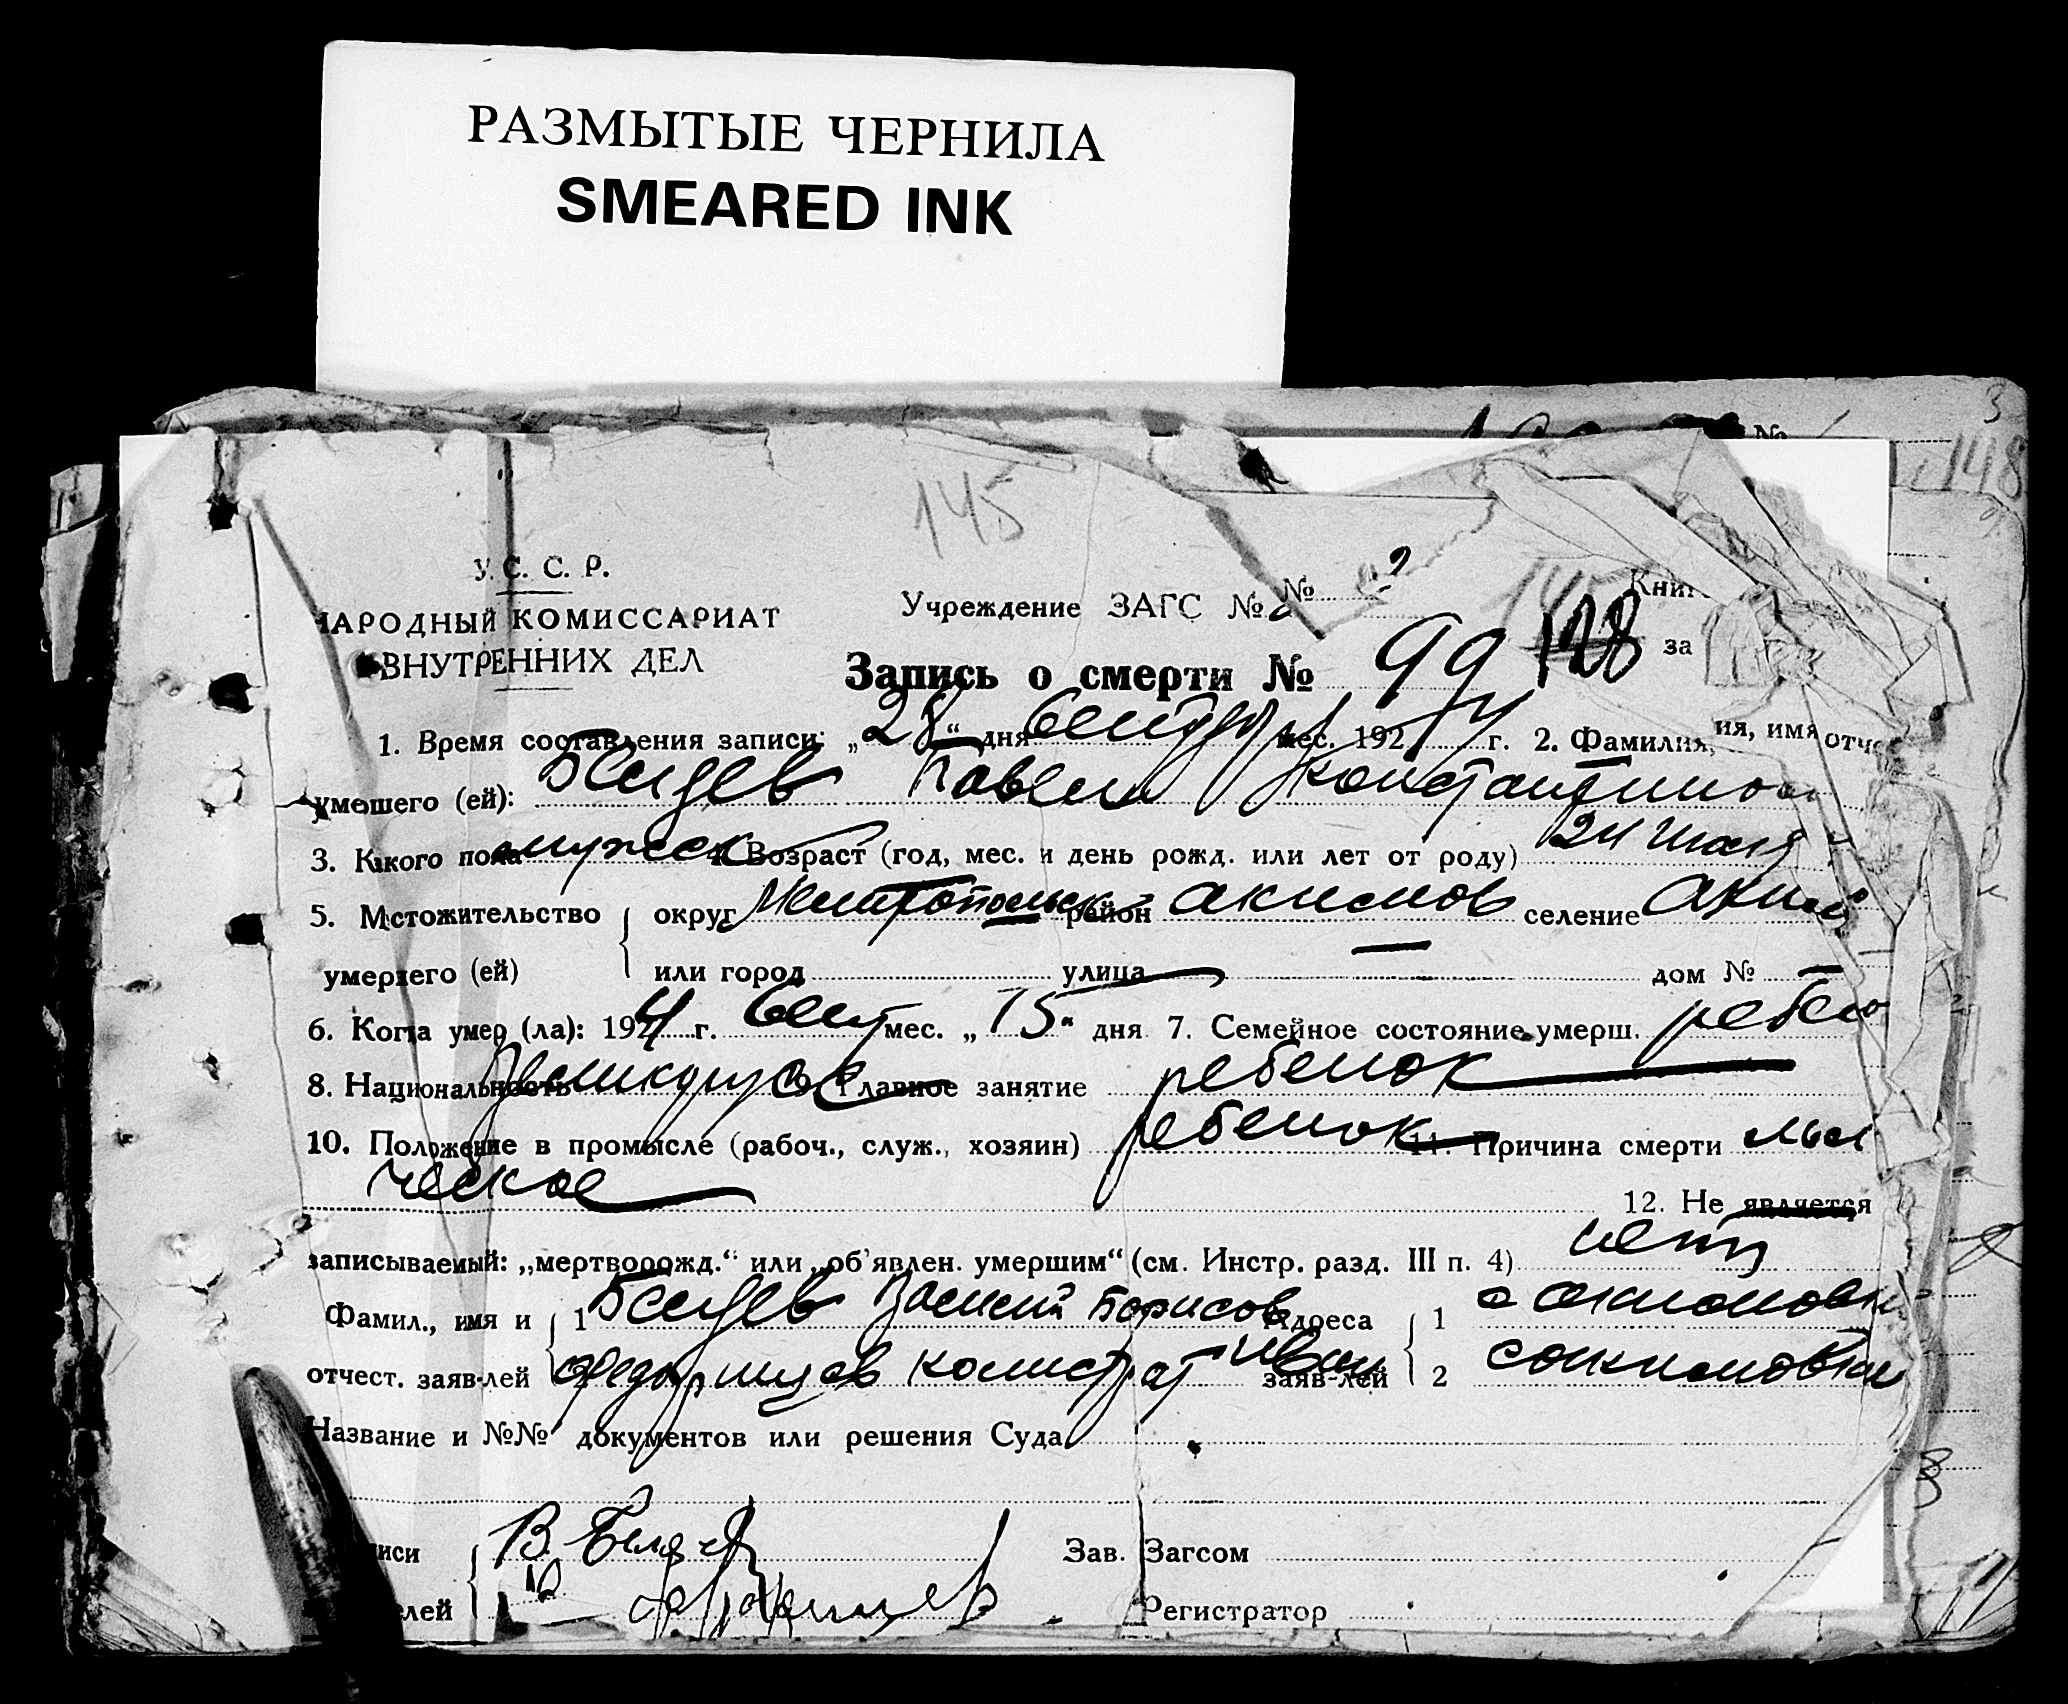 РАЗМЫТЫЕ ЧЕРНИЛА
SMEARED INK
148
145
У. С. С. Р.
НАРОДНЫЙ КОМИССАРИАТ
ВНУТРЕННИХ ДЕЛ
Учреждение ЗАГС №
№
за
Запись о смерти № 99 128
1. Время составления записи: „28“ дня мес. 1924 г. 2. Фамилия, имя отч
умешего (ей): Павел Константинов
3. Какого пола мужск 4. Возраст (год, мес. и день рожд. или лет от роду) 24
5. Местожительство округ Мелитопольск район Акимов селение Аким
умершего (ей) или город улица — дом № —
6. Когда умер (ла): 1924 г. Сент мес. „15“ дня 7. Семейное состояние умерш. ребено
8. Национальность великорус 9. Главное занятие ребенок
10. Положение в промысле (рабоч., служ., хозяин) ребенок 11. Причина смерти
ческое
12. Не является
записываемый: „мертворожд.“ или „об'явлен. умершим“ (см. Инстр. разд. III п. 4) нет
Фамил., имя и 1 Василий Борисов Адреса 1 с Акимовки
отчест. заяв-лей 2 Калистрат заяв-лей 2 с Акимовки
Название и №№ документов или решения Суда
иси В. Зав. Загсом
лей Регистратор